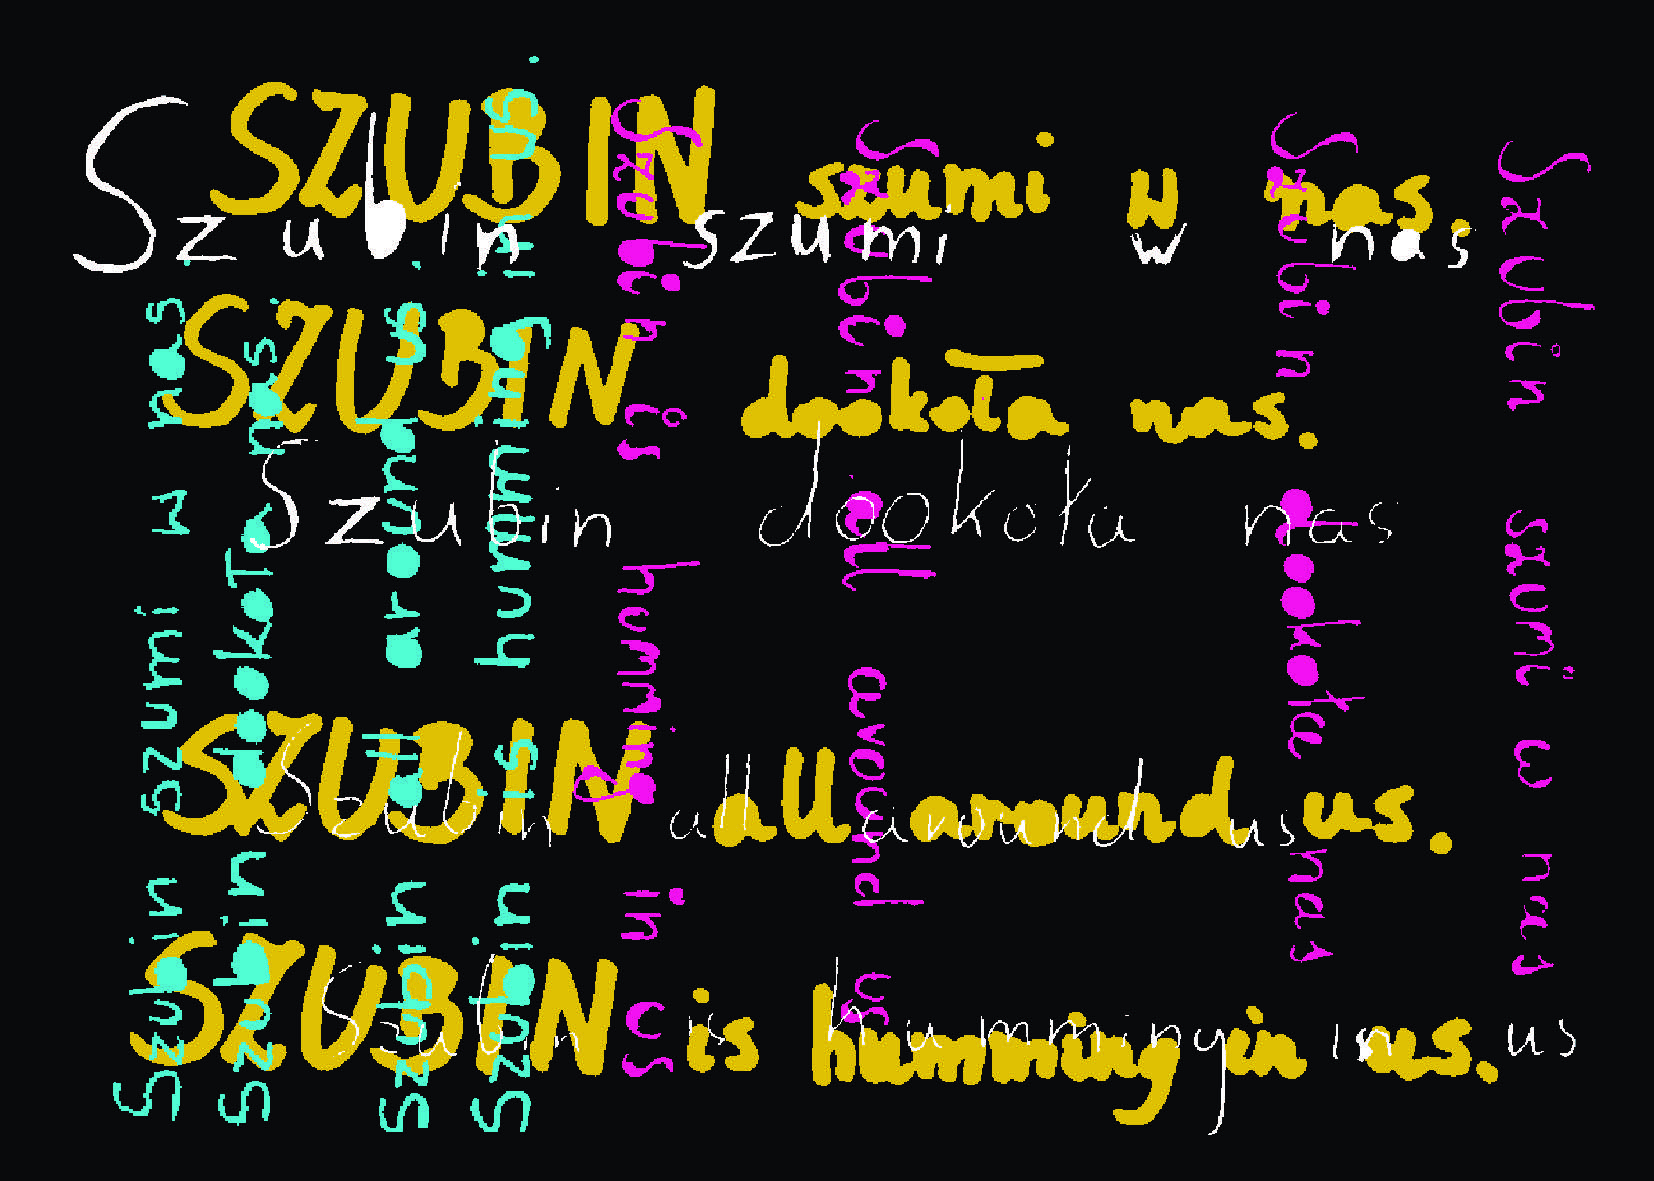 SZUBIN szumi w nas.
Szubin szumi w nas
SZUBIN dookoła nas.
Szubin dookoła nas
SZUBIN all around us.
Szubin all around us
SZUBIN is humming in us.
Szubin is humming in us
Szubin szumi w nas.
Szubin dookoła nas.
Szubin all around us.
Szubin is humming in us.
Szubin is humming in us
Szubin all around us
Szubin dookoła nas
Szubin szumi w nas